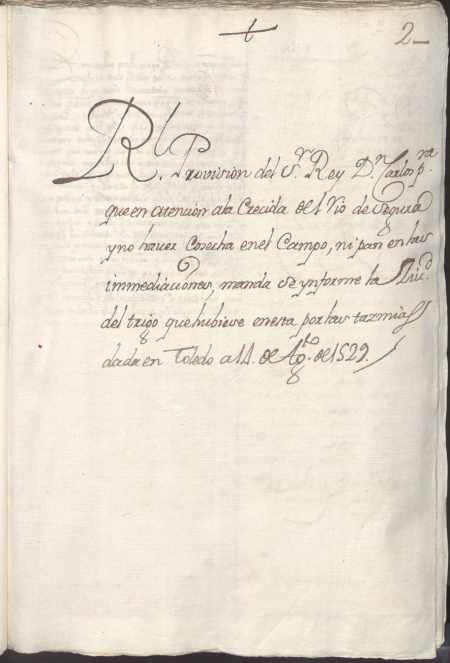 2
Rl. Provision del Sr. Rey Dn. Carlos pra.
que en atencion ala Crecida del Rio de Segura
y no haver Cosecha enel Campo, ni pan en las
immediaciones, manda se ynforme la
del trigo que hubiese enesta por las tazmias
dada en Toledo a 14. de Agto. de 1529.